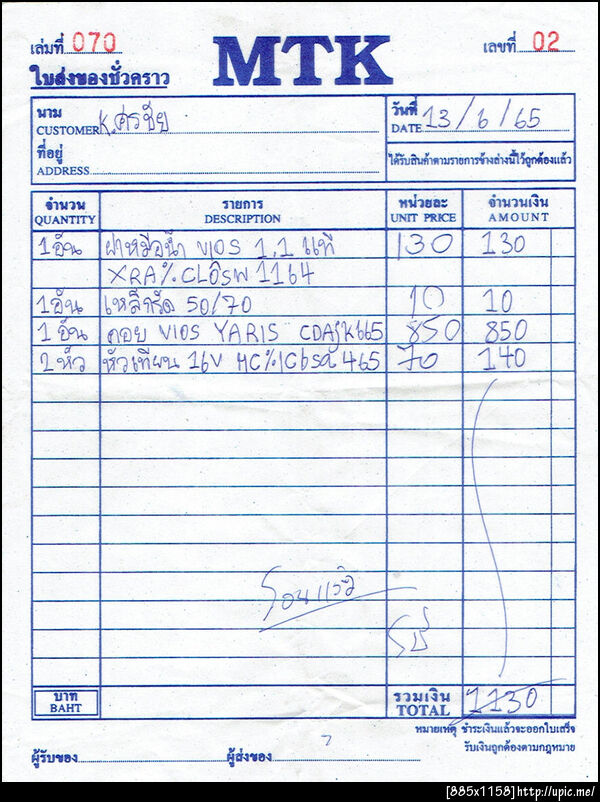 เล่มที่ 070
MTK
เลขที่ 02
ใบส่งของชั่วคราว
นาม
CUSTOMER K.ศรชัย
วันที่
DATE 13/6/65
ที่อยู่
ADDRESS
ได้รับสินค้าตามรายการข้างล่างนี้ไว้ถูกต้องแล้ว
จำนวน รายการ หน่วยละ จำนวนเงิน
QUANTITY DESCRIPTION UNIT PRICE AMOUNT
1 อัน ฝาหม้อน้ำ VIOS 1.1 แท้ 130 130
1164
1 อัน เหล็กรัด 50/70 10 10
1 อัน คอย VIOS YARIS 850 850
2 หัว หัวเทียน 16V 465 70 140
โอนแล้ว
บาท
BAHT
รวมเงิน
TOTAL 1130
หมายเหตุ ชำระเงินแล้วจะออกใบเสร็จ
รับเงินถูกต้องตามกฎหมาย
ผู้รับของ ผู้ส่งของ
[885x1158]http://upic.me/